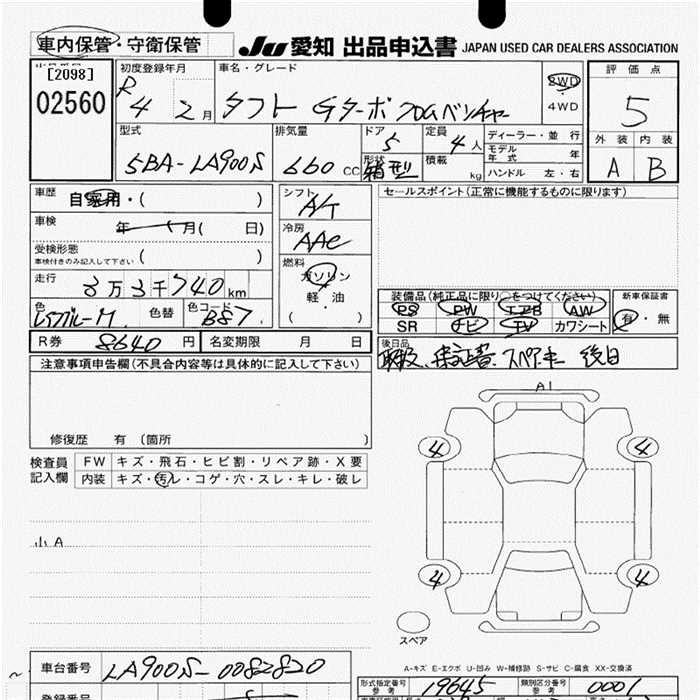 車内保管・守衛保管
JU 愛知 出品申込書 JAPAN USED CAR DEALERS ASSOCIATION
[2098]
02560
初度登録年月
R 4 2月
車名・グレード
タフト Gターボ クロムベンチャー
2WD
4WD
評価点
5
型式
5BA-LA900S
排気量
660cc
ドア
5
定員
4人
形状
箱型
積載
kg
ディーラー・並行
モデル年式 年
ハンドル 左・右
外装 内装
A B
車歴
自家用・( )
シフト
A/T
セールスポイント(正常に機能するものに限ります)
車検
年 月( 日)
冷房
AAC
受検形態
車検付きのみ記入して下さい ( )
燃料
ガソリン
軽・油
( )
走行
3万3千740km
装備品(純正品に限り○をつけてください)
PS PW エアB AW
SR ナビ TV カワシート
新車保証書
有・無
色
色替
色コード
B87
R券 8640円 名変期限 月 日
後日品
取説、保証書、スペアキー 後日
注意事項申告欄(不具合内容等は具体的に記入して下さい)
修復歴 有(箇所 )
検査員記入欄
FW キズ・飛石・ヒビ割・リペア跡・X要
内装 キズ・汚れ・コゲ・穴・スレ・キレ・破レ
小A
A1
4 4
4 4
スペア
A-キズ E-エクボ U-凹み W-補修跡 S-サビ C-腐食 XX-交換済
車台番号 LA900S-0082820
型式指定番号 参考 19645 類別区分番号 参考 0001